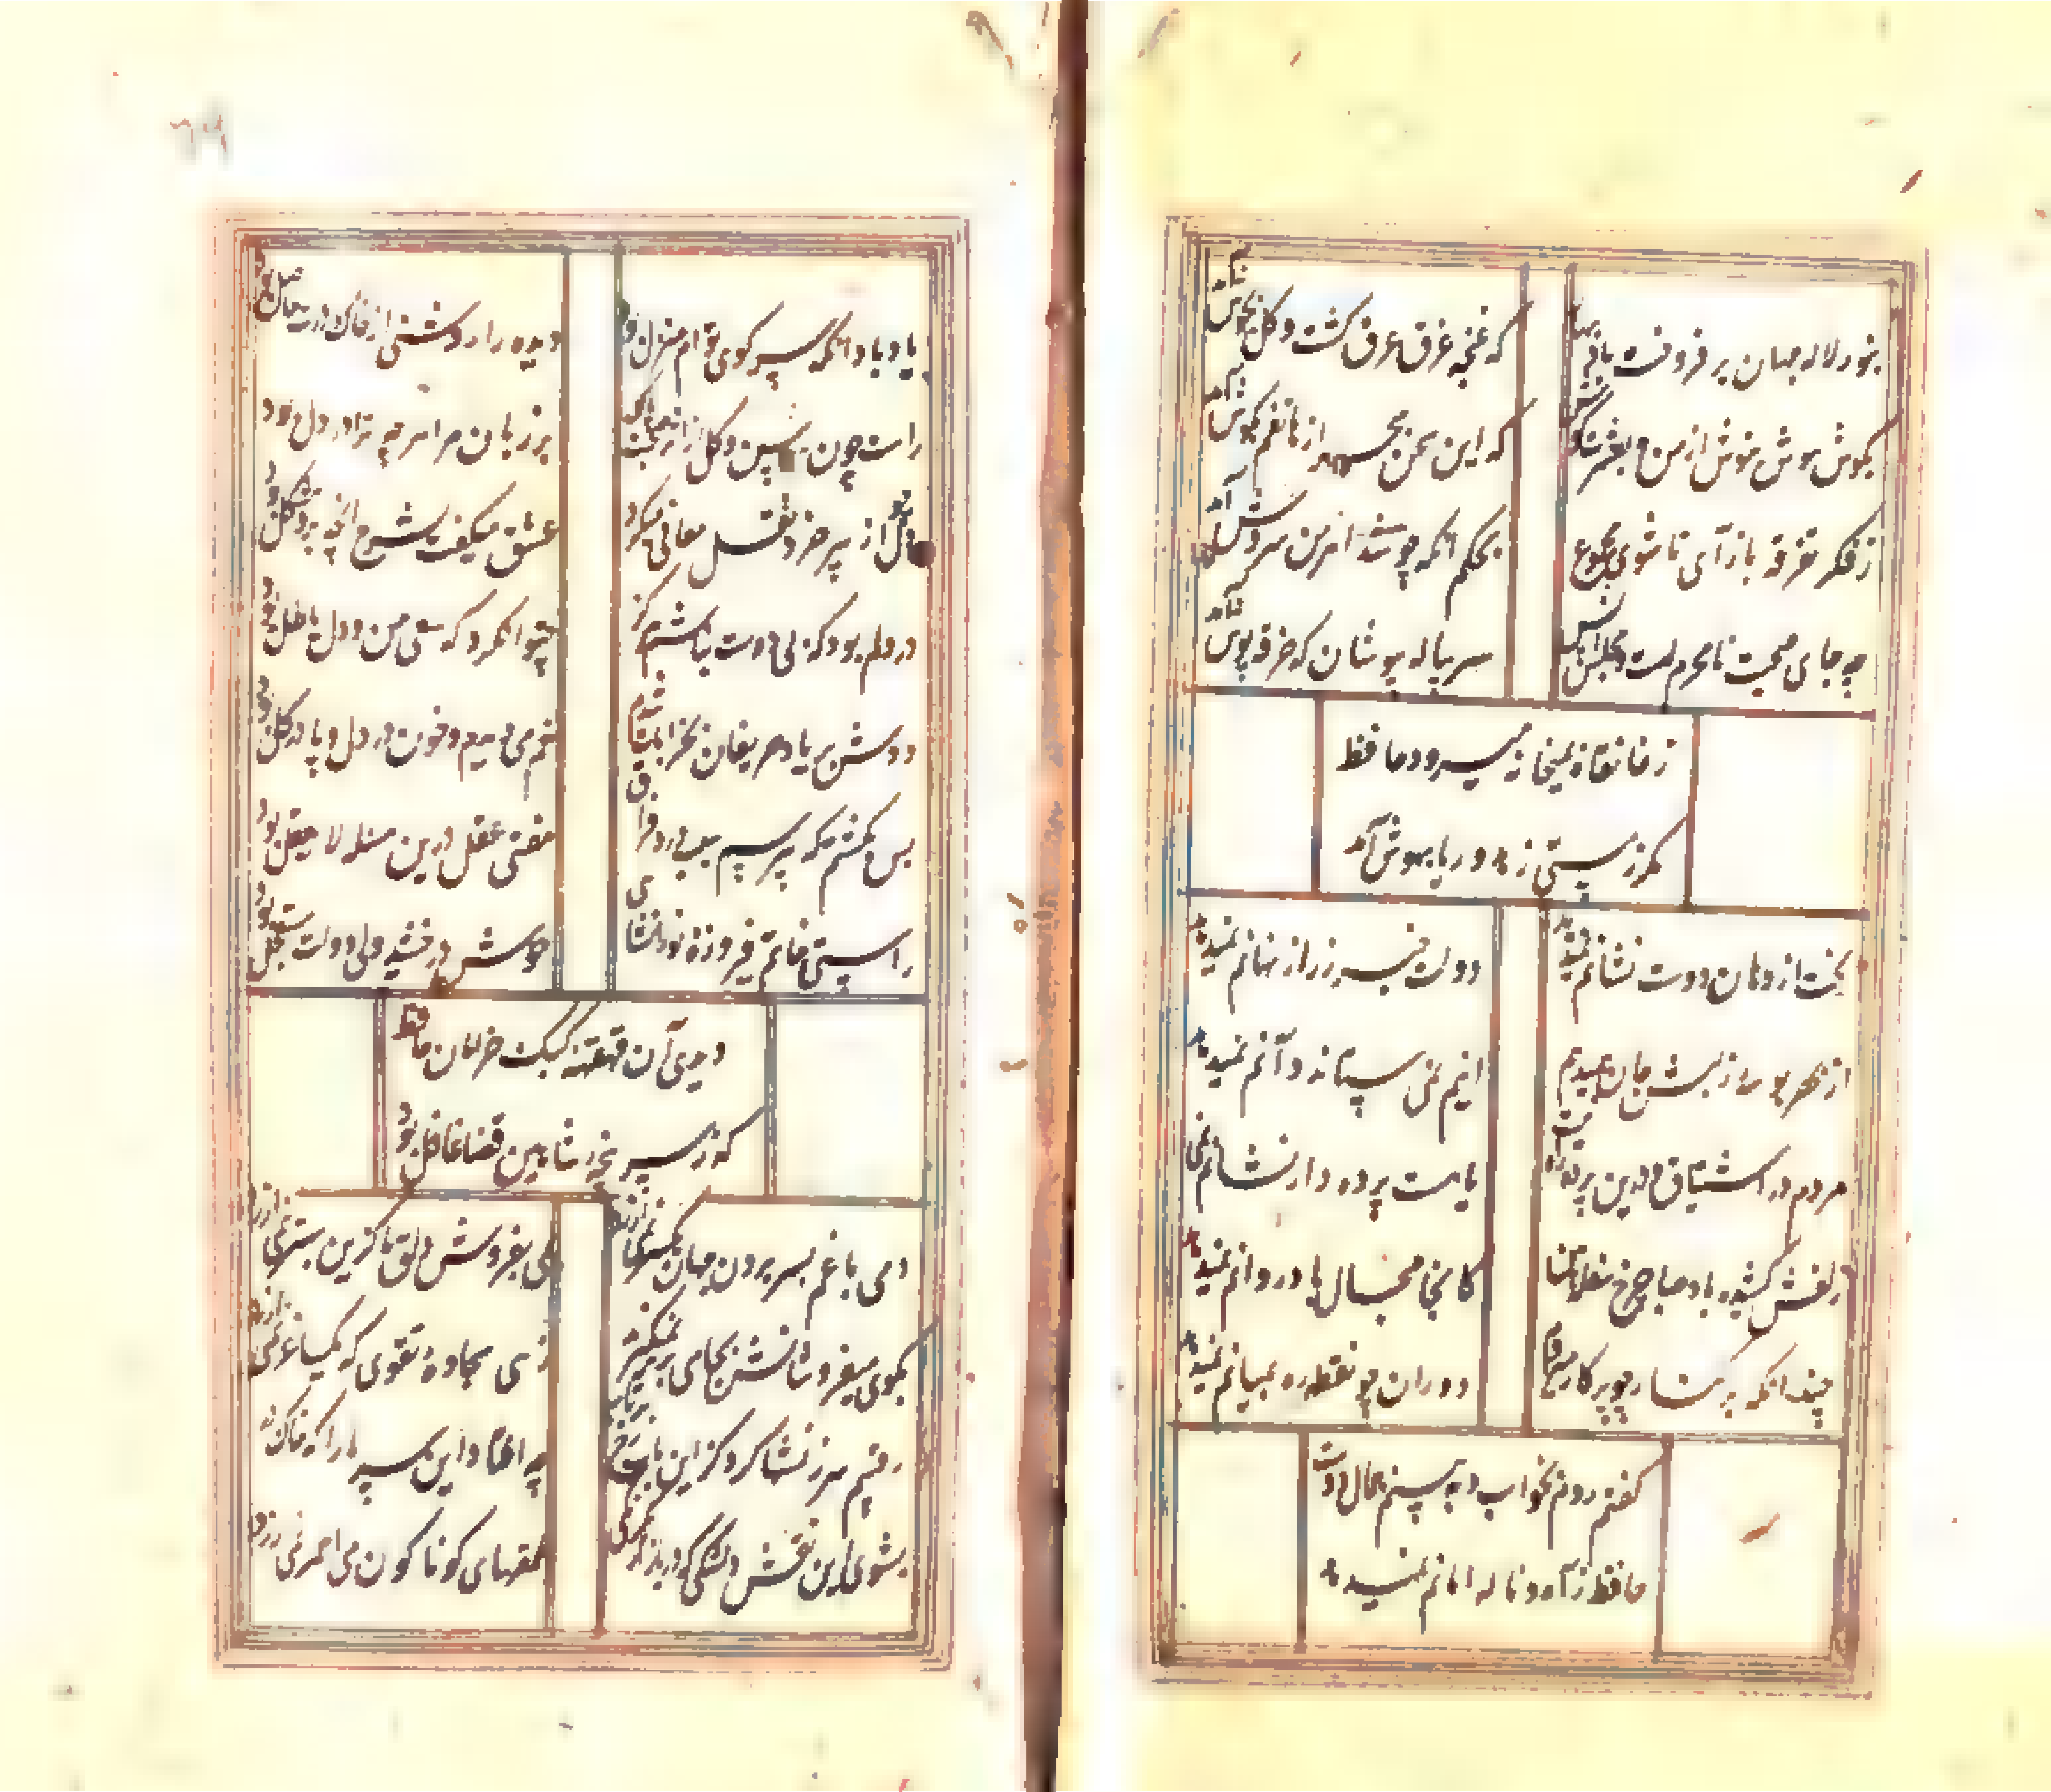 تنور لاله چنان بر فروخت باد بهار
که غنچه غرق عرق گشت و گل بجوش آمد
بگوش هوش نیوش از من و بعشرت کوش
که این سخن سحر از هاتفم بگوش آمد
ز فکر تفرقه باز آی تا شوی مجموع
بحکم آنکه چو شد اهرمن سروش آمد
چه جای صحبت نامحرمست مجلس انس
سر پیاله بپوشان که خرقه پوش آمد
ز خانقاه بمیخانه میرود حافظ
مگر ز مستی زهد و ریا بهوش آمد
بخت از دهان دوست نشانم نمیدهد
دولت خبر ز راز نهانم نمیدهد
از بهر بوسه ز لبش جان همیدهم
اینم نمی ستاند و آنم نمیدهد
مردم در اشتیاق و درین پرده راه نیست
یا هست پرده دار نشانم نمی
زلفش کشید باد صبا چرخ سفله بین
کانجا مجال باد وزانم نمیدهد
چندانکه بر کنار چو پرگار میروم
دوران چو نقطه ره بمیانم نمیدهد
گفتم روم بخواب و ببینم جمال دوست
حافظ ز آه و ناله امانم نمیدهد
یاد باد آنکه سر کوی توام منزل بود
دیده را روشنی از خاک درت حاصل بود
راست چون سوسن و گل از اثر صحبت پاک
بر زبان مرا هر چه ترا در دل بود
دل از پیر خرد نقل معانی میکرد
عشق میگفت بشرح آنچه برو مشکل بود
در دلم بود که بی دوست نباشم هرگز
چتوان کرد که سعی من و دل باطل بود
دوش بر یاد حریفان بخرابات شدم
خم می دیدم و خون در دل و پا در گل بود
بس بگشتم که بپرسم سبب درد فراق
مفتی عقل درین مسئله لا یعقل بود
راستی خاتم فیروزه بواسحاقی
خوش درخشید ولی دولت مستعجل بود
دیدی آن قهقهه کبک خرامان حافظ
که ز سر پنجه شاهین قضا غافل بود
دمی با غم بسر بردن جهان یکسر نمی ارزد
بمی بفروش دلق ما کزین بهتر نمی ارزد
بکوی میفروشانش بجامی بر نمیگیرند
زهی سجاده تقوی که یکساغر نمی ارزد
رقیبم سرزنشها کرد کز این باب رخ برتاب
چه افتاد این سر ما را که خاک در
بشوی این نقش دلتنگی که در بازار یکرنگی
دلقهای گوناگون می احمر نمی ارزد